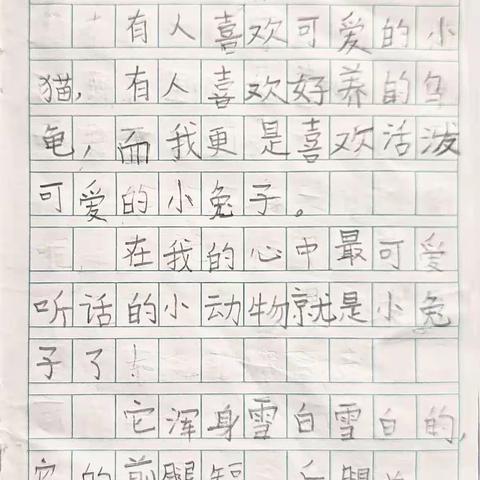 有人喜欢可爱的小
猫，有人喜欢好养的乌
龟，而我更是喜欢活泼
可爱的小兔子。
在我的心中最可爱
听话的小动物就是小兔
子了！
它浑身雪白雪白的，
它的前腿短，后腿